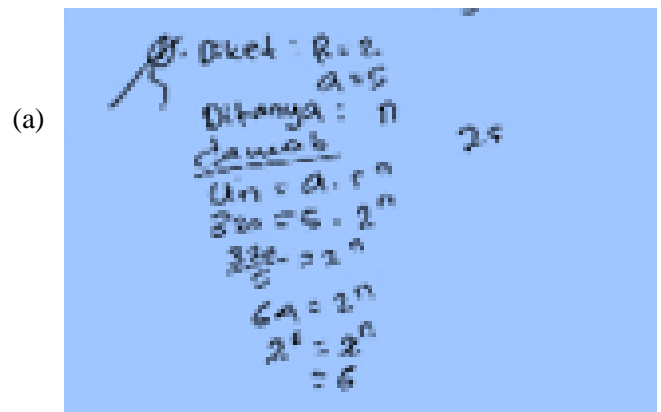 (a)
Diket : R = 2
a = 5
Ditanya : n
Jawab
Un = a . r^n
320 = 5 . 2^n
320/5 = 2^n
64 = 2^n
2^6 = 2^n
= 6